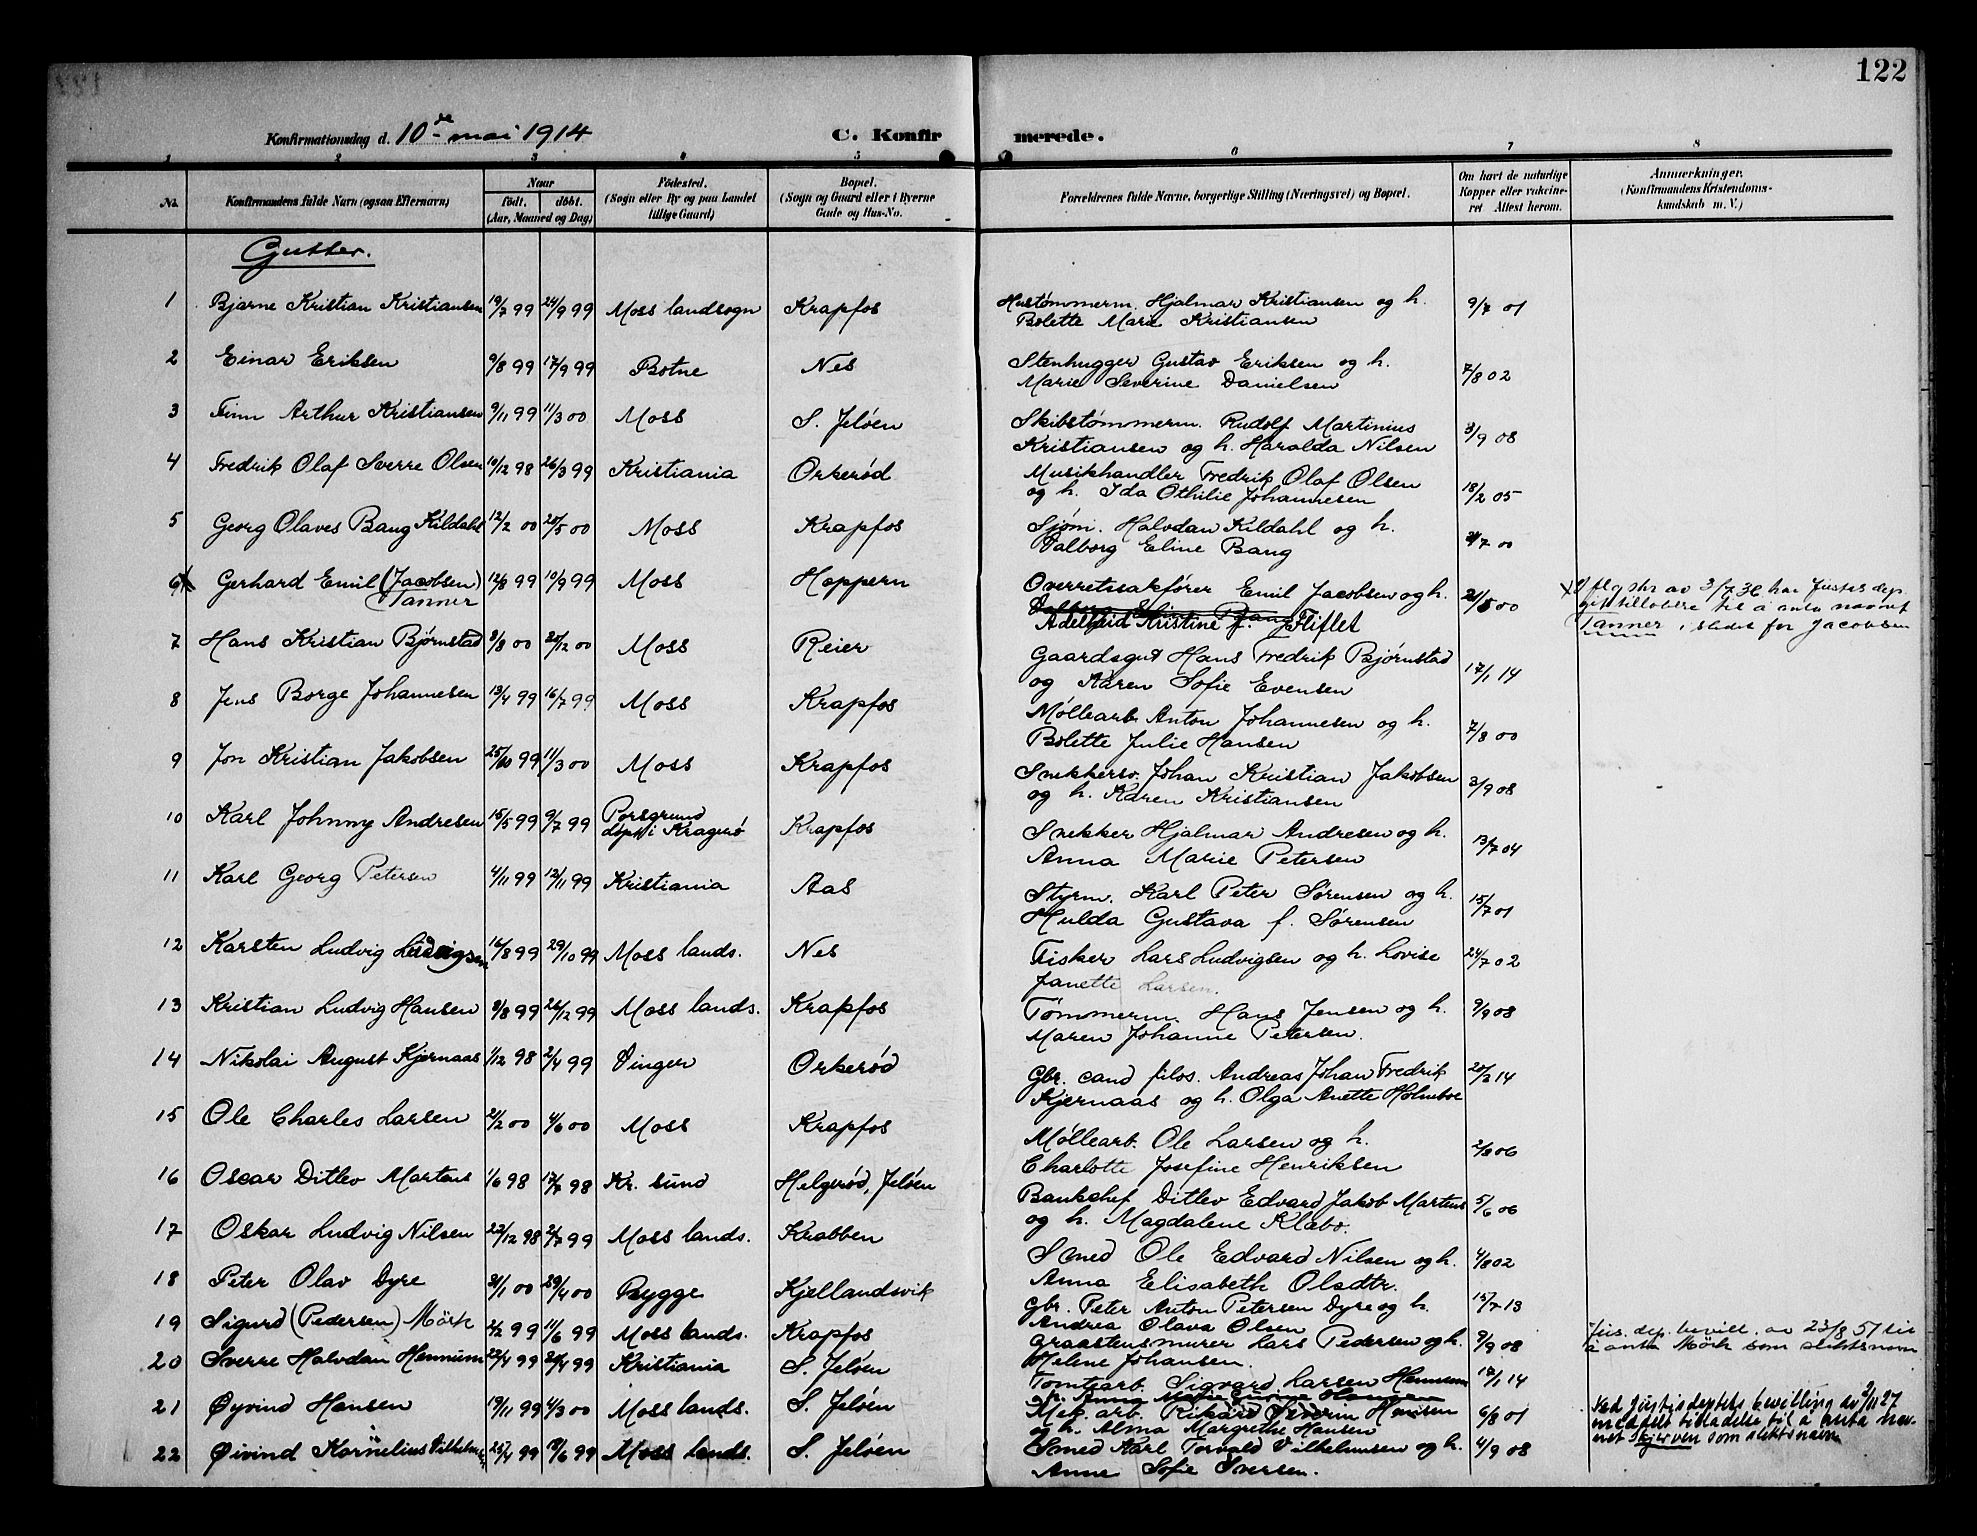 122
Konfirmationsdag d. 10de mai 1914
C. Konfirmerede.
1 2 3 4 5 6 7 8
No. Konfirmandens fulde Navn (ogsaa Efternavn) Naar født. døbt. (Aar, Maaned og Dag) Fødested. (Sogn eller By og paa Landet tillige Gaard) Bopæl. (Sogn og Gaard eller i Byerne Gade og Hus-No. Forældrenes fulde Navne, borgerlige Stilling (Næringsvei) og Bopæl. Om havt de naturlige Kopper eller vaccineret Attest herom. Anmærkninger. (Konfirmandens Kristendomskundskab m. V.)
Gutter.
1 Bjarne Kristian Kristiansen 19/7 99 24/9 99 Moss landsogn Krapfos Hustømmerm. Hjalmar Kristiansen og h. 9/7 01
Bolette Marie Kristiansen
2 Einar Eriksen 9/8 99 17/9 99 Botne Nes Stenhugger Gustav Eriksen og h. 7/8 02
Marie Severine Danielsen
3 Finn Arthur Kristiansen 9/11 99 11/3 00 Moss S. Jeløen Skibstømmerm. Rudolf Martinius 3/9 08
Kristiansen og h. Haralda Nilsen
4 Fredrik Olaf Sverre Olsen 10/12 98 26/3 99 Kristiania Orkerød Musikhandler Fredrik Olaf Olsen 18/2 05
og h. Ida Othilie Johannesen
5 Georg Olaves Bang Kildahl 12/2 00 20/5 00 Moss Krapfos Sjøm. Halvdan Kildahl og h. 7 00
Valborg Eline Bang
6 x Gerhard Emil (Jacobsen) 12/8 99 10/9 99 Moss Hoppern Overretssakfører Emil Jacobsen og h. 21/5 00 x av 3/7 36 har Justis dep.
Tanner Adelheid Kristine f. Fliflet gitt tillatelse til å anta navnet
Tanner, i stedet for Jacobsen
7 Hans Kristian Bjørnstad 3/8 00 20/12 00 Moss Reier Gaardsgut Hans Fredrik Bjørnstad 17/1 14
og Karen Sofie Evensen
8 Jens Borge Johannesen 13/4 99 16/7 99 Moss Krapfos Møllearb. Anton Johannesen og h. 7/8 00
Bolette Julie Hansen
9 Jon Kristian Jakobsen 25/10 99 11/3 00 Moss Krapfos Snekkersv. Johan Kristian Jakobsen 3/9 08
og h. Karen Kristiansen
10 Karl Johnny Andresen 15/5 99 9/7 99 Porsgrund Krapfos Snekker Hjalmar Andresen og h. 13/7 04
døpt i Kragerø Anna Marie Petersen
11 Karl Georg Petersen 4/11 99 12/11 99 Kristiania Aas Styrm. Karl Peter Sørensen og h. 15/7 01
Hulda Gustava f. Sørensen
12 Karsten Ludvig Ludvigsen 16/8 99 29/10 99 Moss lands. Nes Fisker Lars Ludvigsen og h. Lovise 24/7 02
Janette Larsen.
13 Kristian Ludvig Hansen 3/8 99 26/12 99 Moss lands. Krapfos Tømmerm. Hans Jensen og h. 9/9 08
Maren Johanne Petersen.
14 Nikolai August Kjernaas 1/12 98 2/4 99 Vinger Orkerød Gbr. cand filos. Andreas Johan Fredrik 20/2 14
Kjernaas og h. Olga Anette Holmboe
15 Ole Charles Larsen 21/2 00 4/6 00 Moss Krapfos Møllearb. Ole Larsen og h. 2/8 06
Charlotte Josefine Henriksen
16 Oscar Ditlev Martens 1/6 98 17/7 98 Kr. sund Helgerød, Jeløen Bankchef Ditlev Edvard Jakob Martens 5/6 06
og h. Magdalene Klæbo.
17 Oskar Ludvig Nilsen 22/12 98 2/7 99 Moss lands. Krabben Smed Ole Edvard Nilsen og h. 4/8 02
Anna Elisabeth Olsdtr.
18 Peter Olav Dyre 31/1 00 29/4 00 Rygge Kjellandsvik Gbr. Peter Anton Petersen Dyre og h. 15/7 13
Andrea Olava Olsen
19 Sigurd (Pedersen) Mörk 2/2 99 11/6 99 Moss lands. Krapfos Graastensmurer Lars Pedersen og h. 9/9 08 Jus. dep. bevill. av 23/8 51 til
Helene Johansen. å anta Mörk som slektsnavn
20 Sverre Halvdan Hennum 22/4 99 29/4 99 Kristiania S. Jeløen Tomtearb. Sigvard Larsen Hennum 17/1 14
21 Øyvind Hansen 19/11 99 4/3 00 Moss lands. S. Jeløen Mek. arb. Rikard Severin Hansen 6/8 01 Ved Justisdeptets bevilling av 2/11 27
og h. Alma Margrethe Hansen meddelt tilladelse til å anta nav-
net Skjerven som slektsnavn
22 Øivind Kornelius Vilhelmsen 25/4 99 18/6 99 Moss lands. S. Jeløen Smed Karl Torvald Vilhelmsen og h. 4/9 08
Anne Sofie Iversen.